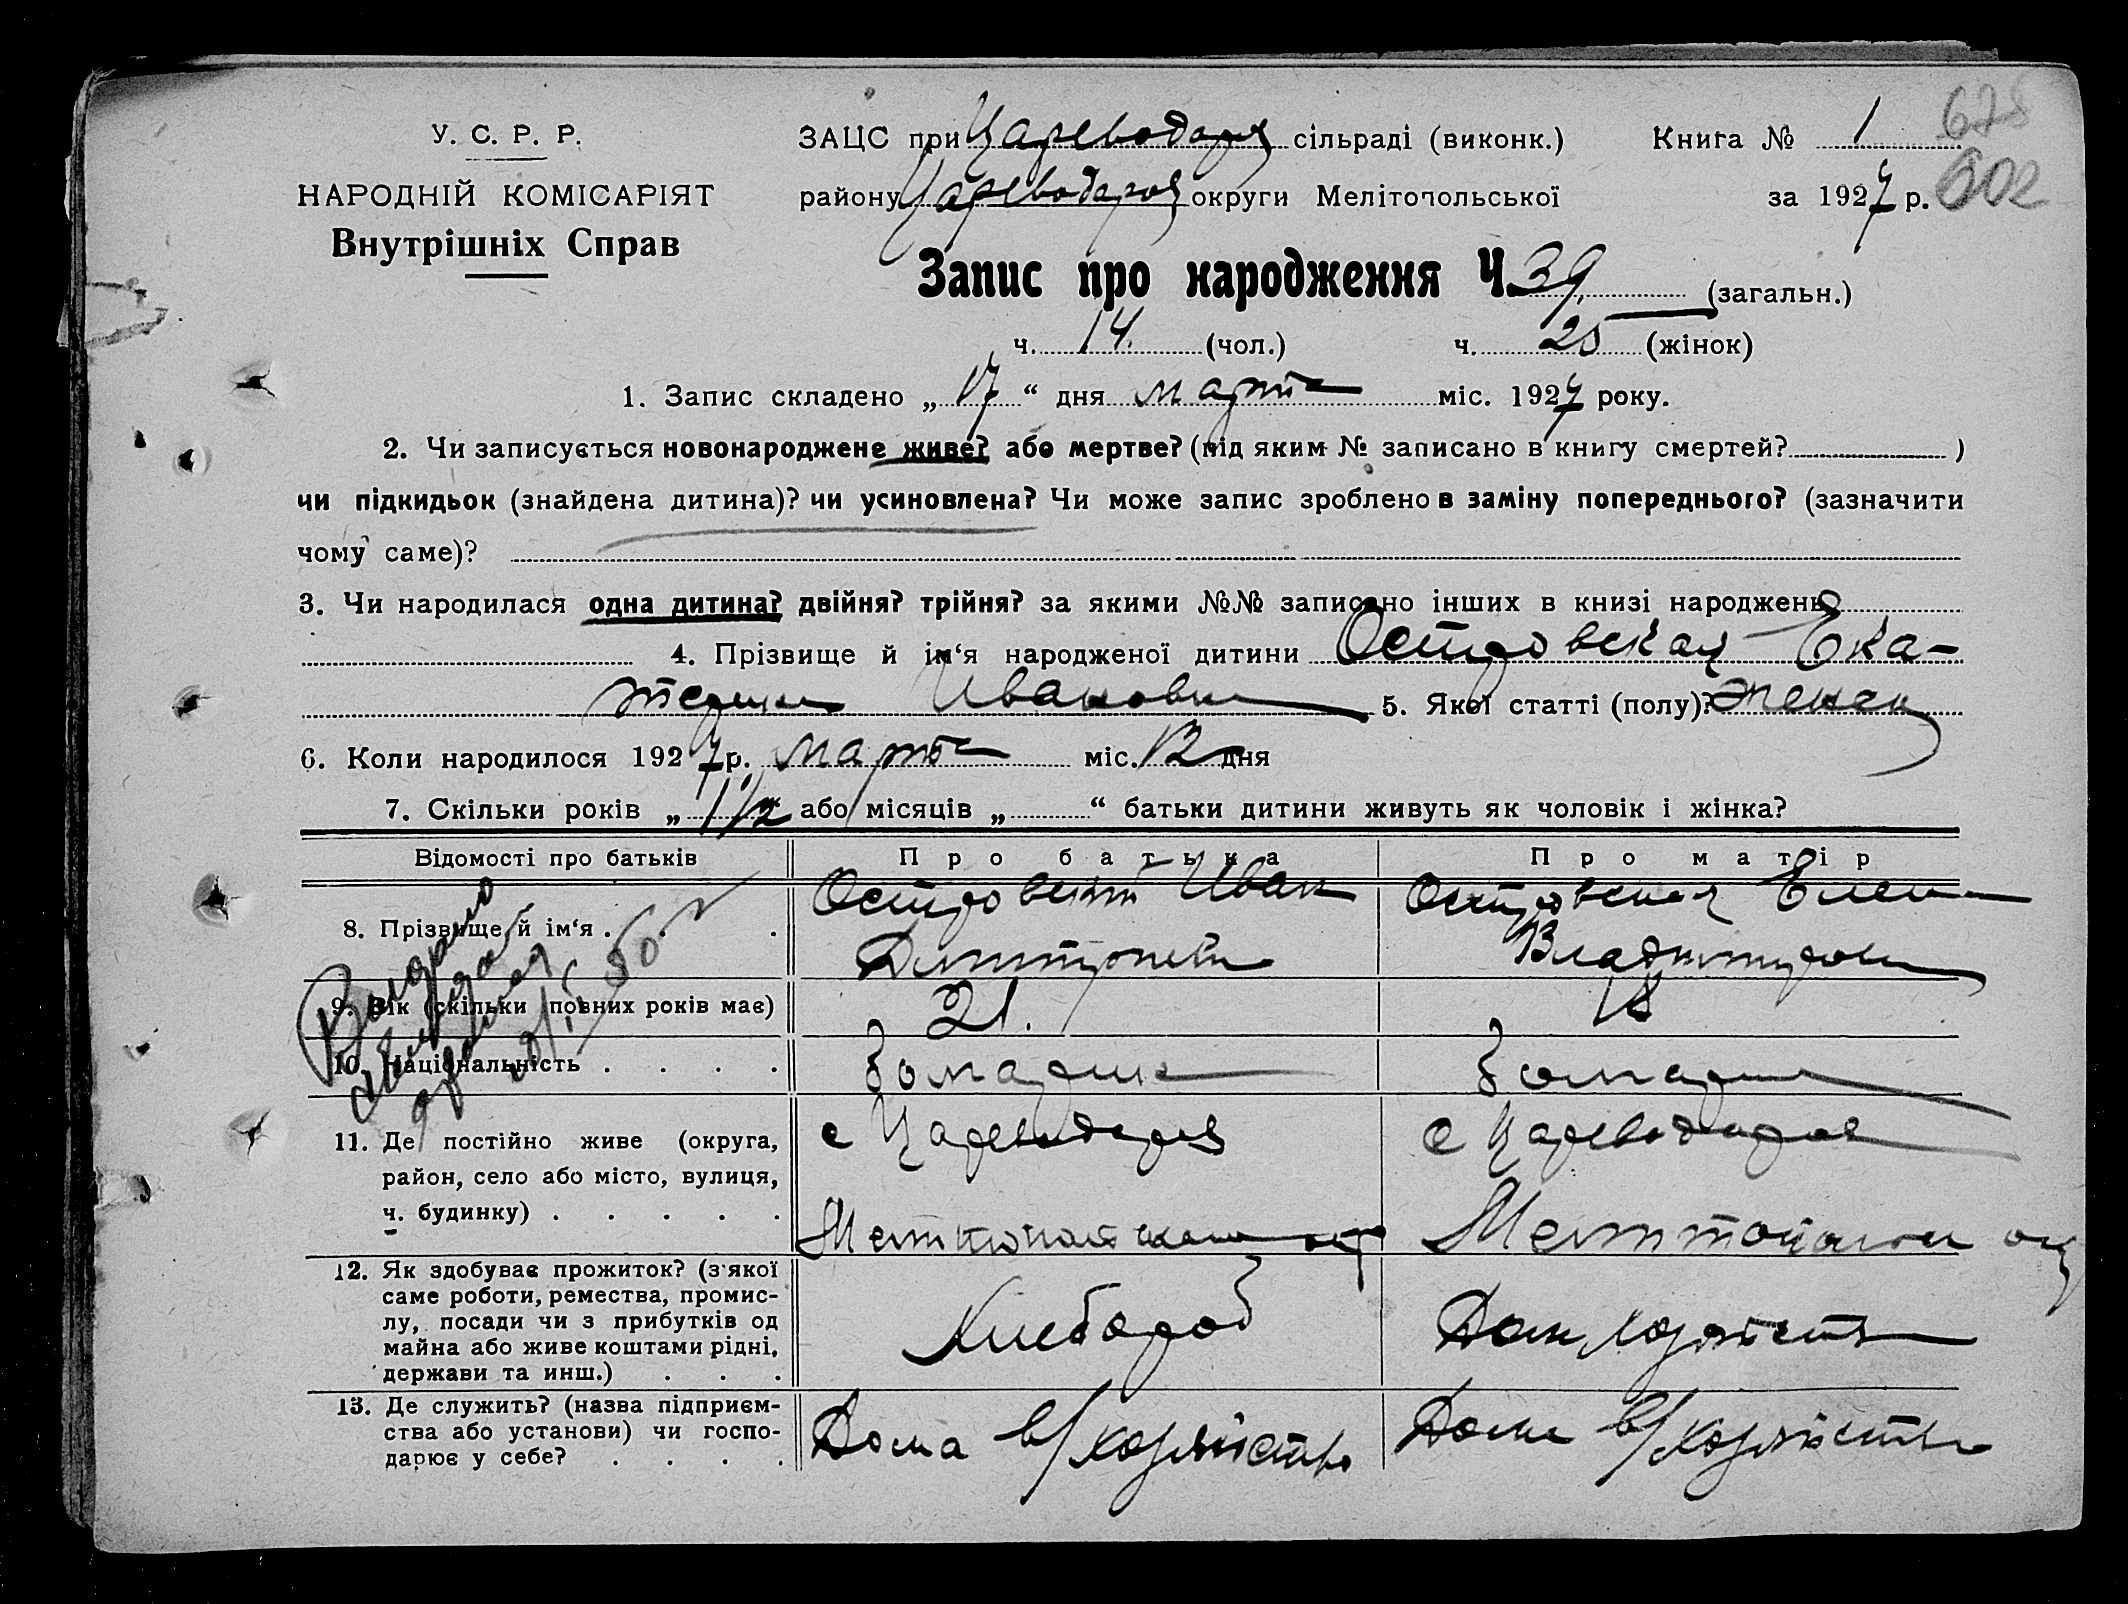 У. С. Р. Р.
НАРОДНІЙ КОМІСАРІЯТ
Внутрішніх Справ
ЗАЦС при Цареводаря сільраді (виконк.) Книга № 1
району Цареводаров округи Мелітопольської за 1927 р.
602
Запис про народження Ч. 39 (загальн.)
ч. 14. (чол.) ч. 25 (жінок)
1. Запис складено „17“ дня марта міс. 1927 року.
2. Чи записується новонароджене живе? або мертве? (під яким № записано в книгу смертей? )
чи підкидьок (знайдена дитина)? чи усиновлена? Чи може запис зроблено в заміну попереднього? (зазначити
чому саме)?
3. Чи народилася одна дитина? двійня? трійня? за якими №№ записано інших в книзі народжень?
4. Прізвище й ім‘я народженої дитини Островская Ека-
терина Ивановна 5. Якої статті (полу)? женск
6. Коли народилося 1927 р. марта міс. 12 дня
7. Скільки років „1 1/2 або місяців „ “ батьки дитини живуть як чоловік і жінка?
Відомості про батьків Про батька Про матір
8. Прізвище й ім‘я . . . Островский Иван Островская Елена
Дмитриевич Владимировна
9. Вік (скільки повних років має) 21. 18
10. Національність . . . .
11. Де постійно живе (округа, с Цареводаря с Цареводаров
район, село або місто, вулиця,
ч. будинку) . . . . . Мелитопольской окр Мелитопольск ок
12. Як здобуває прожиток? (з'якої
саме роботи, ремества, промис-
лу, посади чи з прибутків од Хлебороб Дом хозяйств
майна або живе коштами рідні,
держави та инш.) . . .
13. Де служить? (назва підприєм-
ства або установи) чи госпо- Дома в/хозяйстве Дома в/хозяйстве
дарює у себе? . . . .